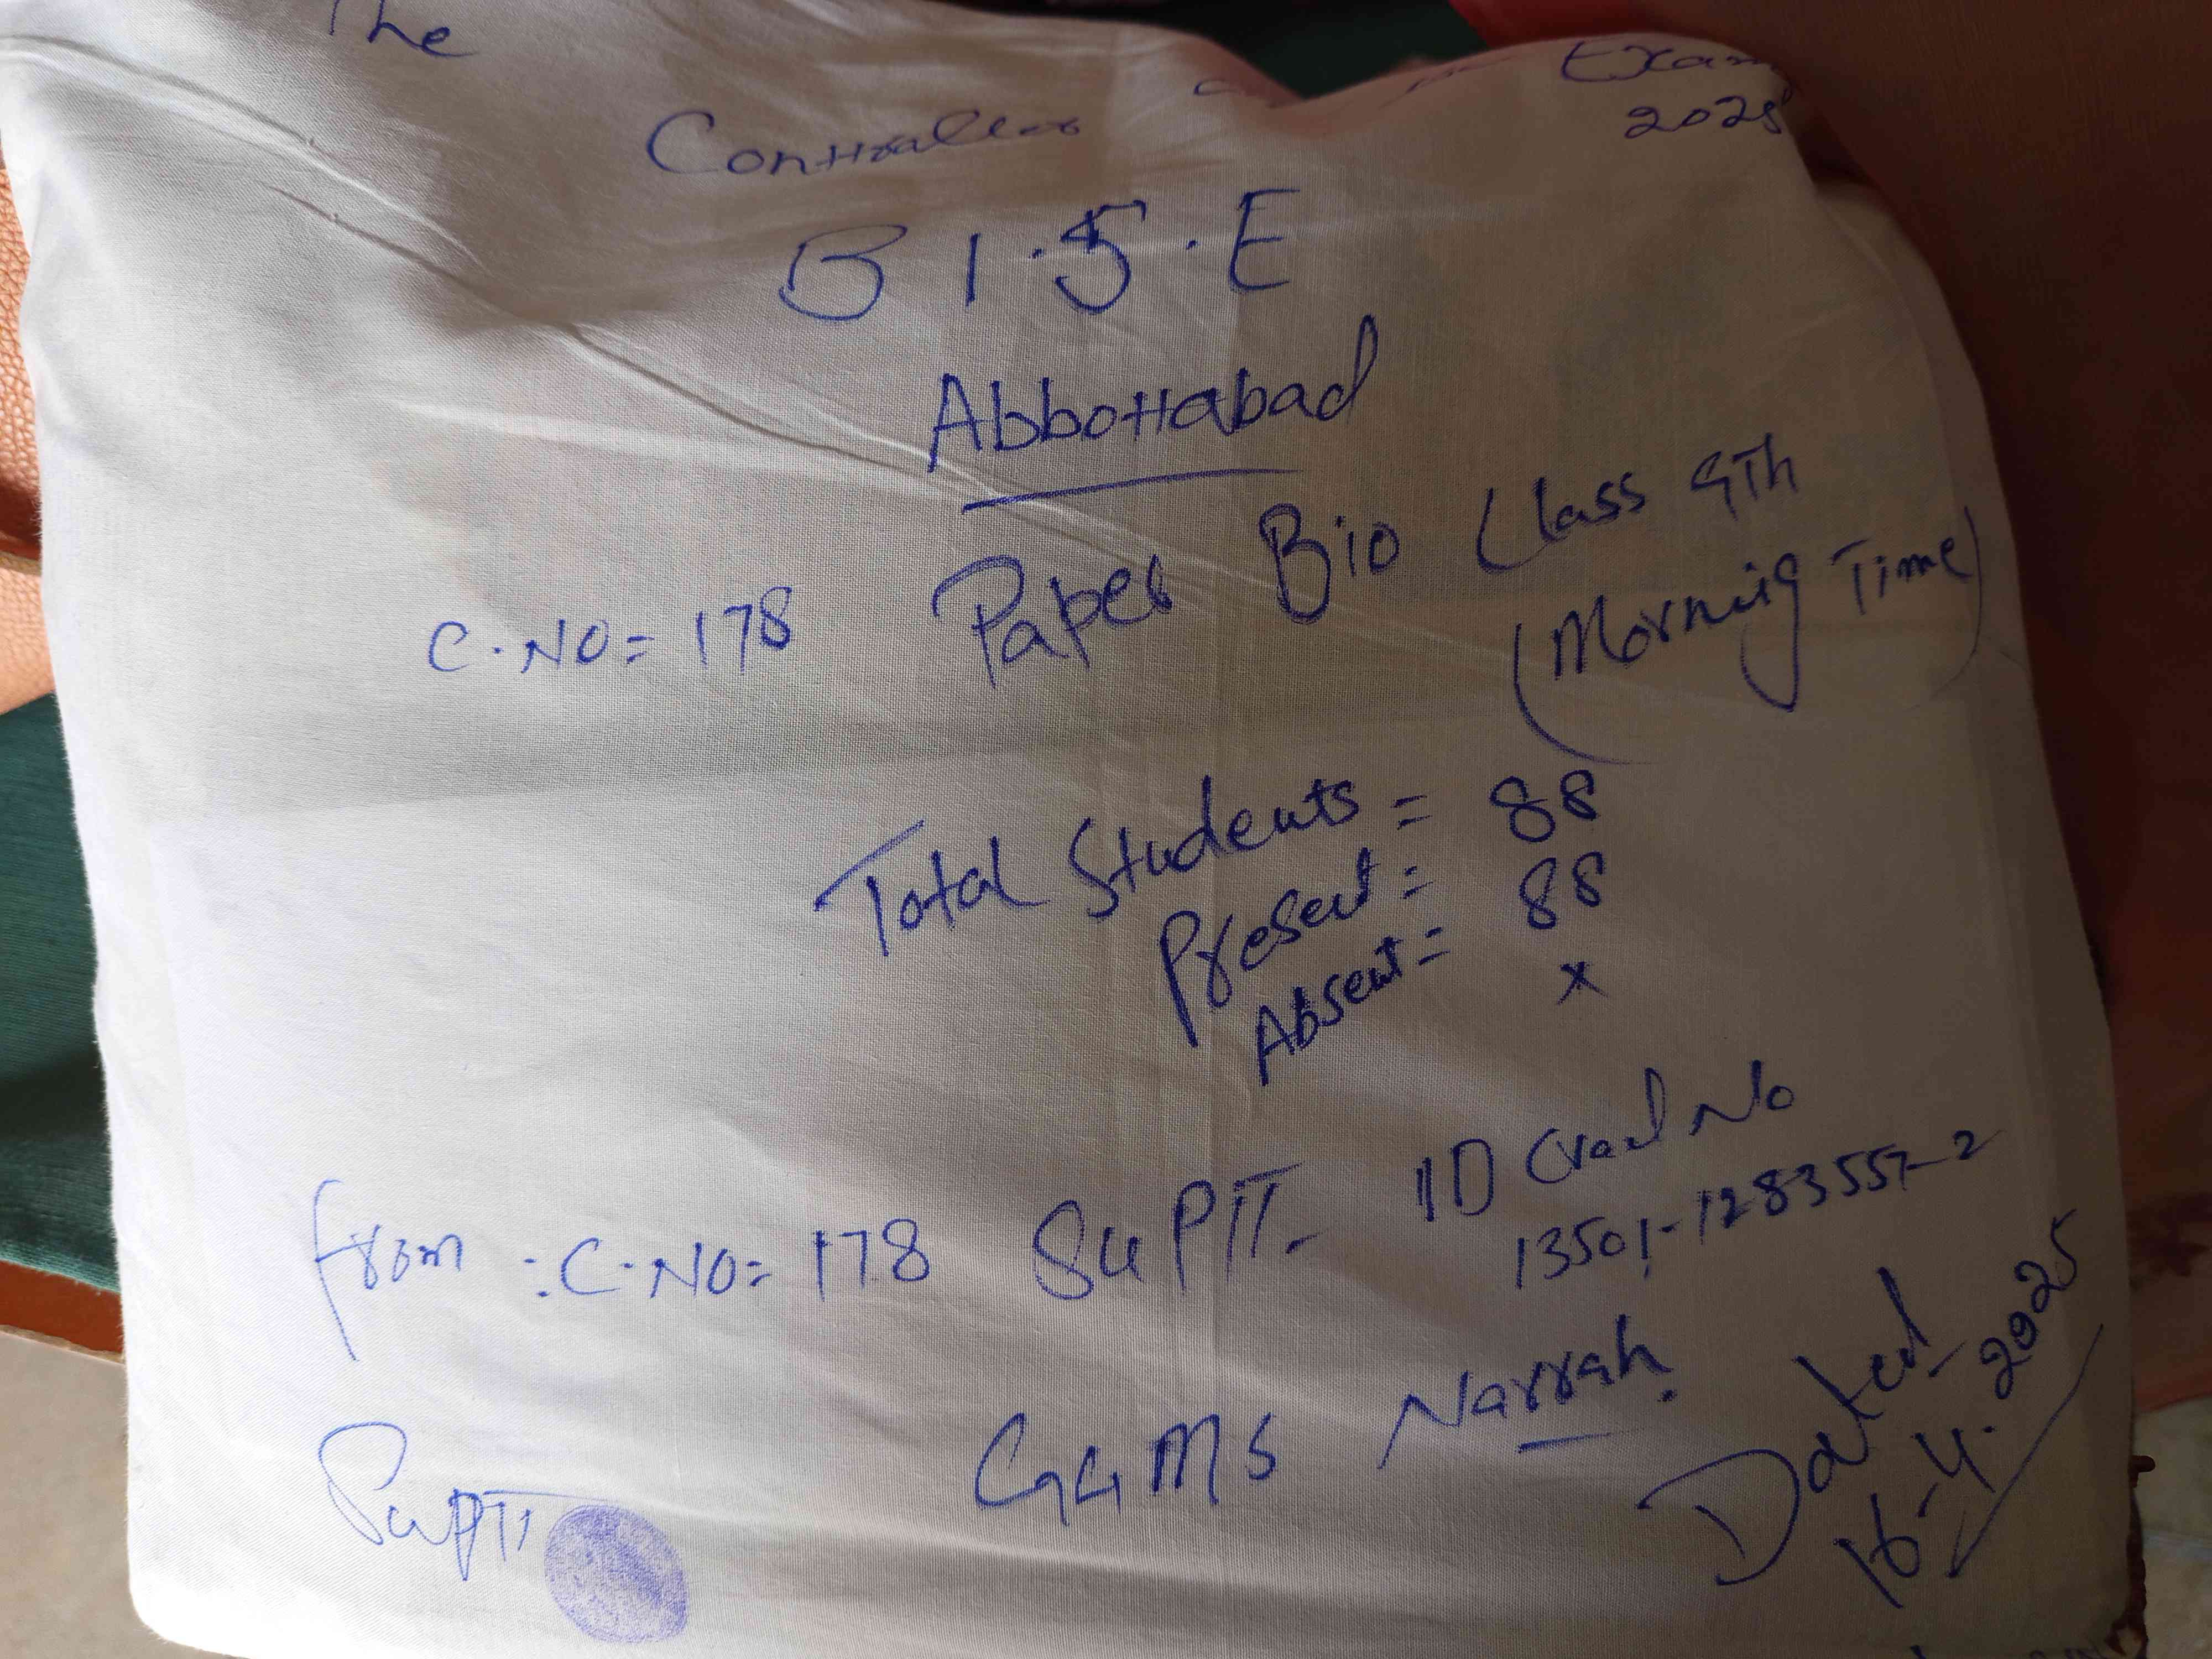 The
Controller Exam
2025
B I.S.E
Abbottabad
C.NO= 178 Paper Bio Class 9Th
(Morning Time)
Total Students = 88
Present = 88
Absent = x
ID Crad No
From :C.NO= 178 SUPTT- 13501-1283557-2
GGMS Narrah.
Suptt
Dated
16-4-2025